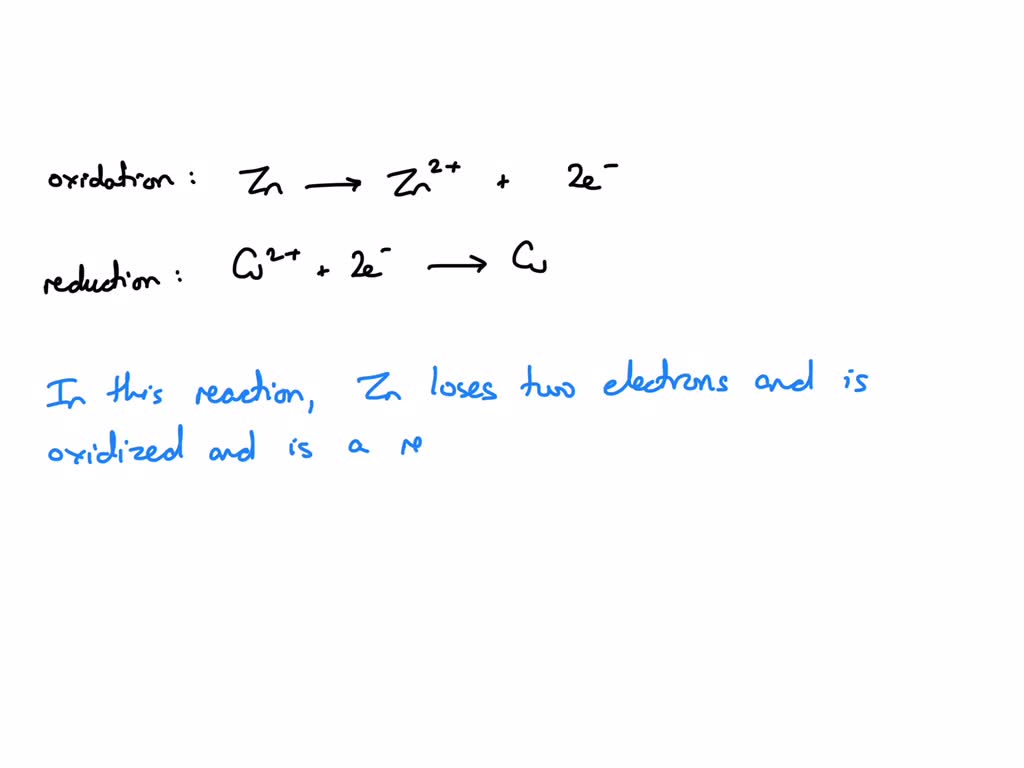 oxidation: Zn → Zn²⁺ + 2e⁻
reduction: Cu²⁺ + 2e⁻ → Cu
In this reaction, Zn loses two electrons and is
oxidized and is a re